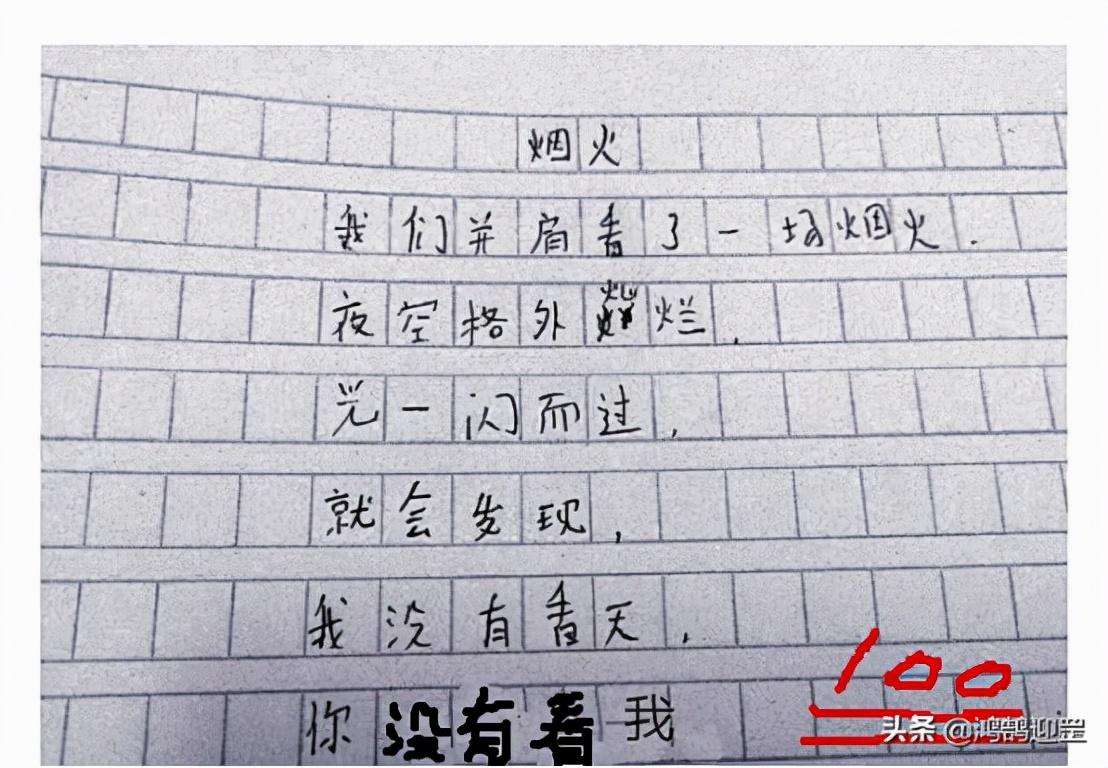 烟火
我们并肩看了一场烟火.
夜空格外灿烂.
光一闪而过,
就会发现,
我没有看天.
你没有看我
100
头条 @鸿鹄迎罡